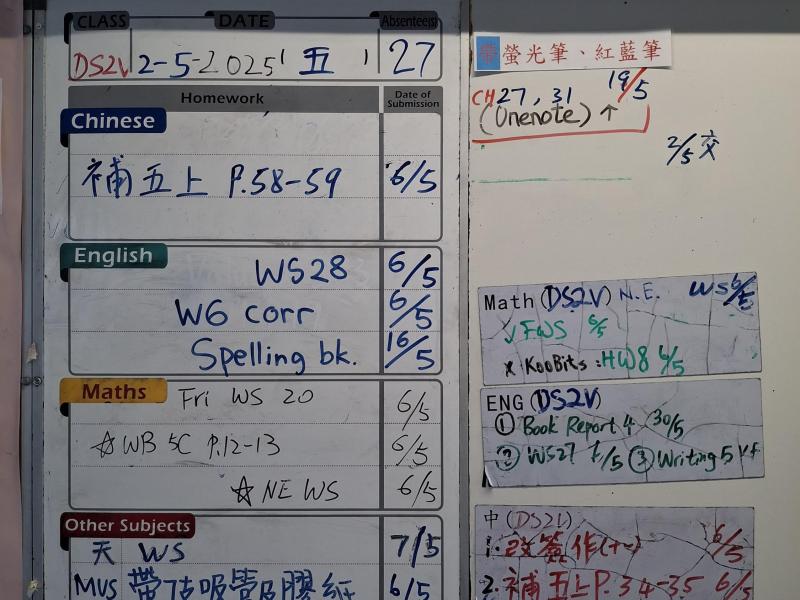 CLASS DATE Absentee(s)
DS2V 2-5-2025 (五) 27
Homework Date of Submission
Chinese
補五上 P.58-59 6/5
English
WS28 6/5
W6 corr 6/5
Spelling bk. 16/5
Maths
Fri WS 20 6/5
☆ WB 5C P.12-13 6/5
☆ NE WS 6/5
Other Subjects
天 WS 7/5
MUS 帶7古吸管及膠紙 6/5
帶螢光筆、紅藍筆
CH 27, 31 19/5
(Onenote) ↑
2/5 交
Math (DS2V) N.E. WS 6/5
✓ FWS 6/5
x KooBits: HW8 6/5
ENG (DS2V)
① Book Report 4 30/5
② WS27 /5 ③ Writing 5
中 (DS2V)
1. 改簽作(十一) 6/5
2. 補五上P.34-35 6/5